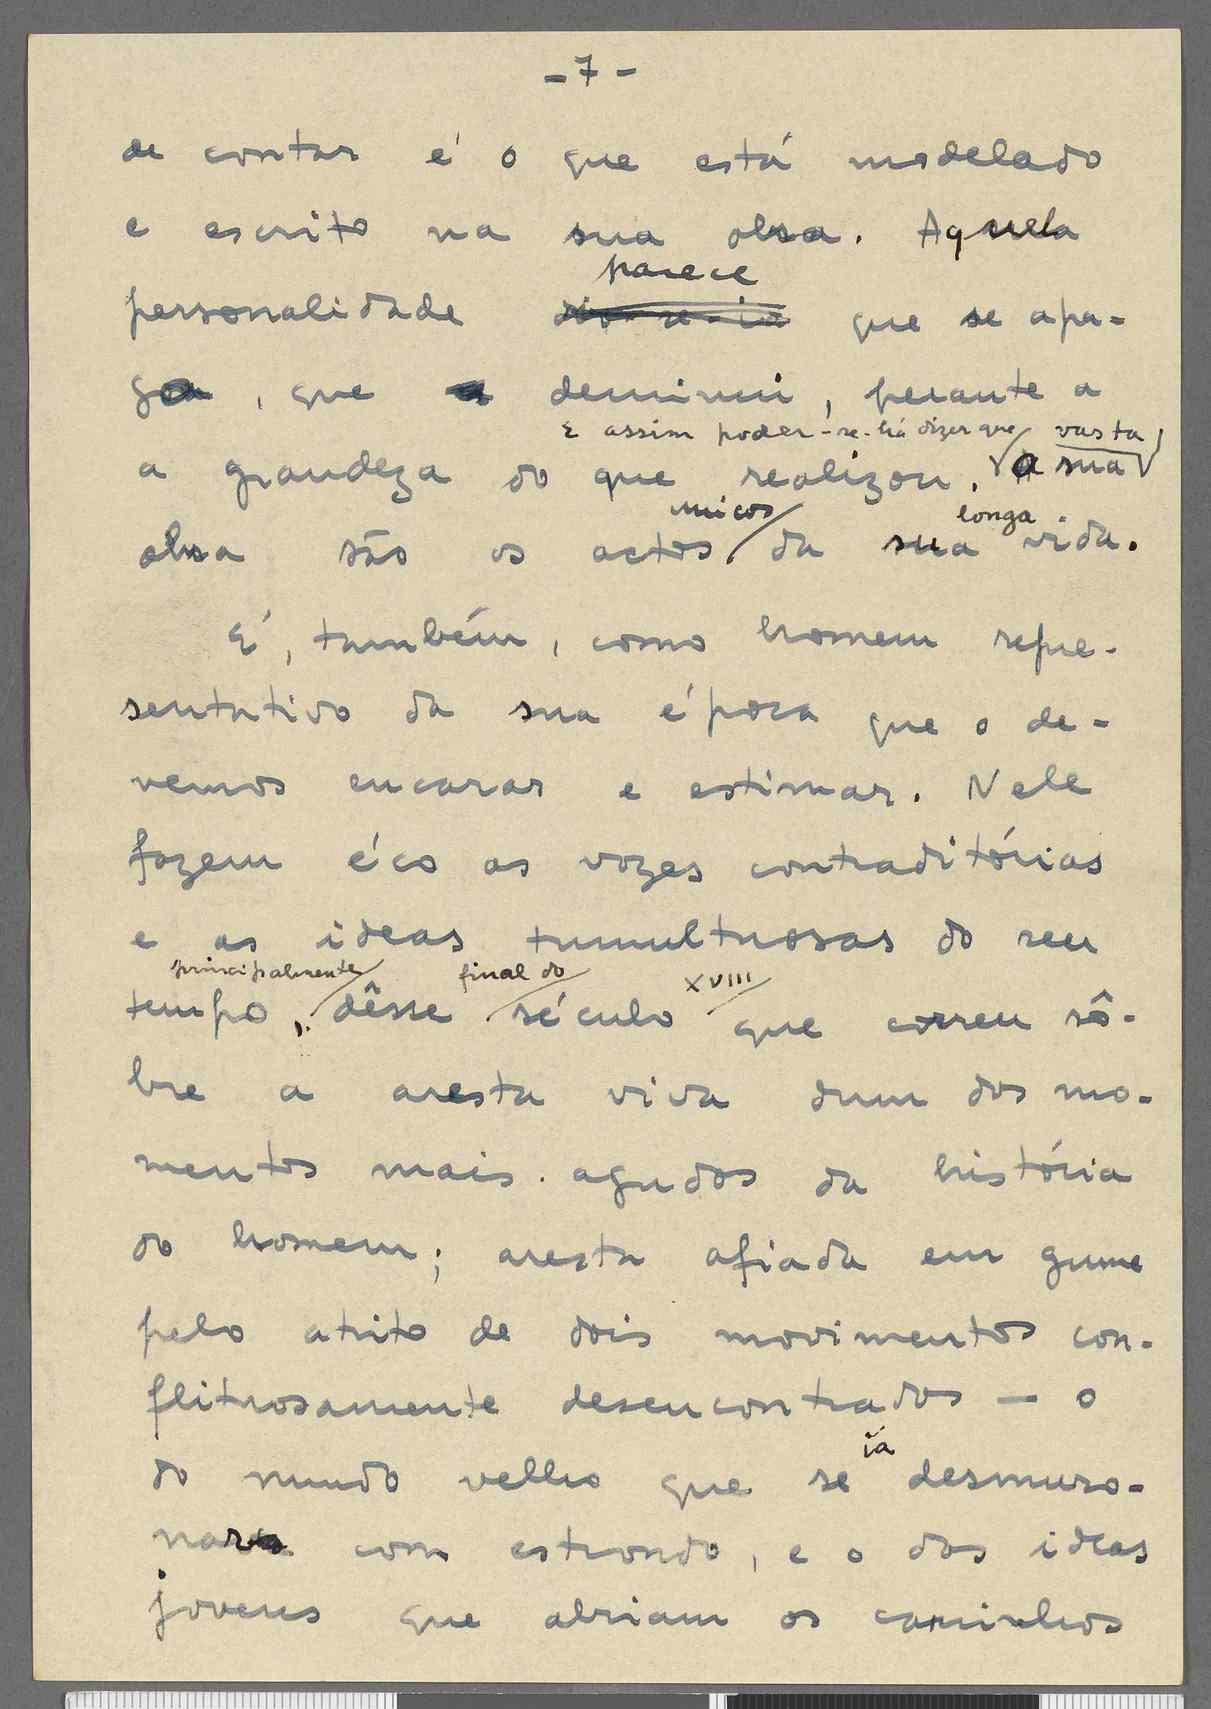 - 7 -
de contar é o que está modelado
e escrito na sua obra. Aquela
parece
personalidade dir-se-ia que se apa-
ga, que deminui, perante a
E assim poder-se-há dizer que vasta
a grandeza do que realizou. a sua
unicos longa
obra são os actos da sua vida.
É, também, como homem repre-
sentativo da sua época que o de-
vemos encarar e estimar. Nele
fazem éco as vozes contraditórias
e as ideas tumultuosas do seu
principalmente final do XVIII
tempo, dêsse século que correu sô-
bre a aresta viva dum dos mo-
mentos mais agudos da história
do homem; aresta afiada em gume
pelo atrito de dois movimentos con-
flituosamente desencontrados — o
ia
do mundo velho que se desmoro-
nar com estrondo, e o das ideas
jovens que abriam os caminhos